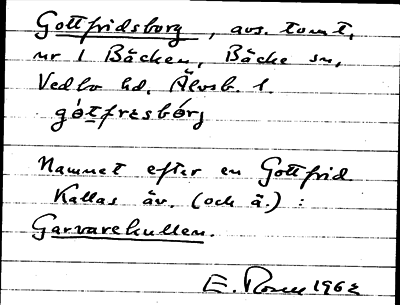 Gottfridsborg, avs. tomt,
nr 1 Bäcken, Bäcke sn,
Vedbo hd, Älvsb. l.
gótfrεsbórj
Namnet efter en Gottfrid.
Kallas äv. (och ä.) :
Garvarekullen.
E. 1962